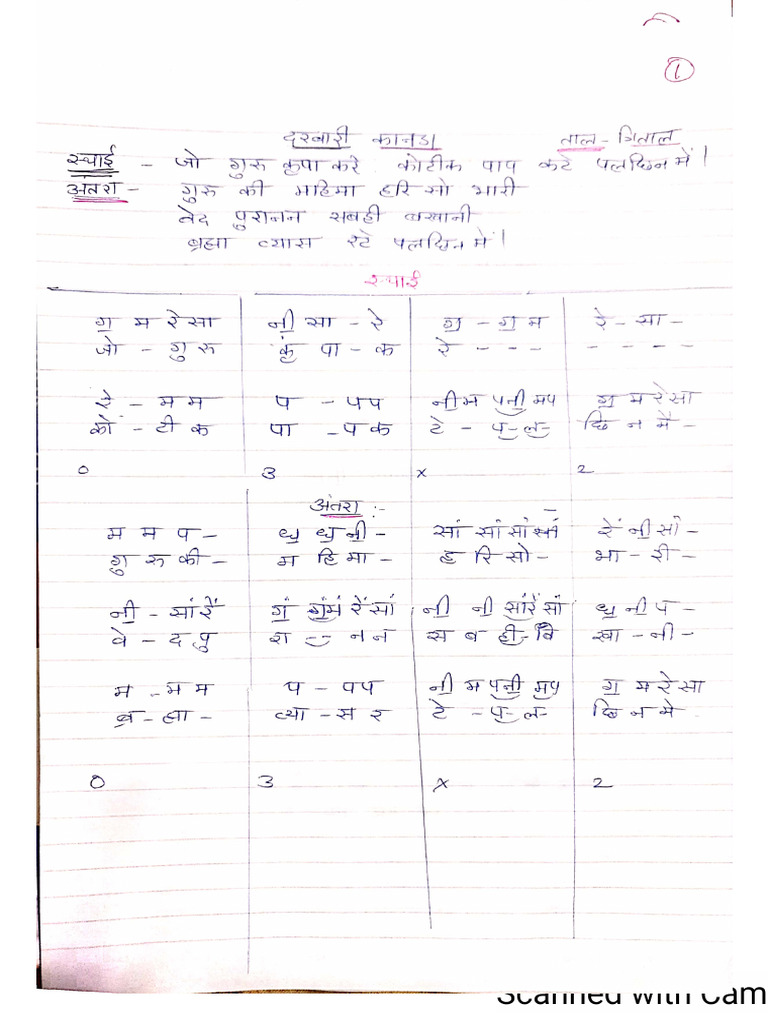 1
दरबारी कानडा ताल - त्रिताल
स्थाई - जो गुरु कृपा करे कोटीक पाप कटे पलछिन में।
अंतरा - गुरु की महिमा हरि सो भारी
वेद पुरानन सबही बखानी
ब्रह्मा व्यास रटे पलछिन में।
स्थाई
ग॒ म रे सा नी॒ सा - रे ग॒ - ग॒ म रे - सा -
जो - गु रु कृ पा - क रे - - - - - - -
रे - म म प - प प नी॒ म प नी॒ म प ग॒ म रे सा
को - टी क पा - प क टे - प - ल - छि न में -
0 3 x 2
अंतरा :-
म म प - ध॒ ध॒ नी॒ - सां सां सां रें नी सां -
गु रु की - म हि मा - ह रि सो - भा - री -
नी॒ - सां रें गं॒ गं॒ मं रें सां नी॒ नी॒ सां रें सां ध॒ नी॒ प -
वे - द पु रा - न न स ब ही - खा - नी -
म - म म प - प प नी॒ म प नी॒ म प ग॒ म रे सा
ब्र - ह्मा - व्या - स र टे - प - ल - छि न मे -
0 3 x 2
Scanned with Cam